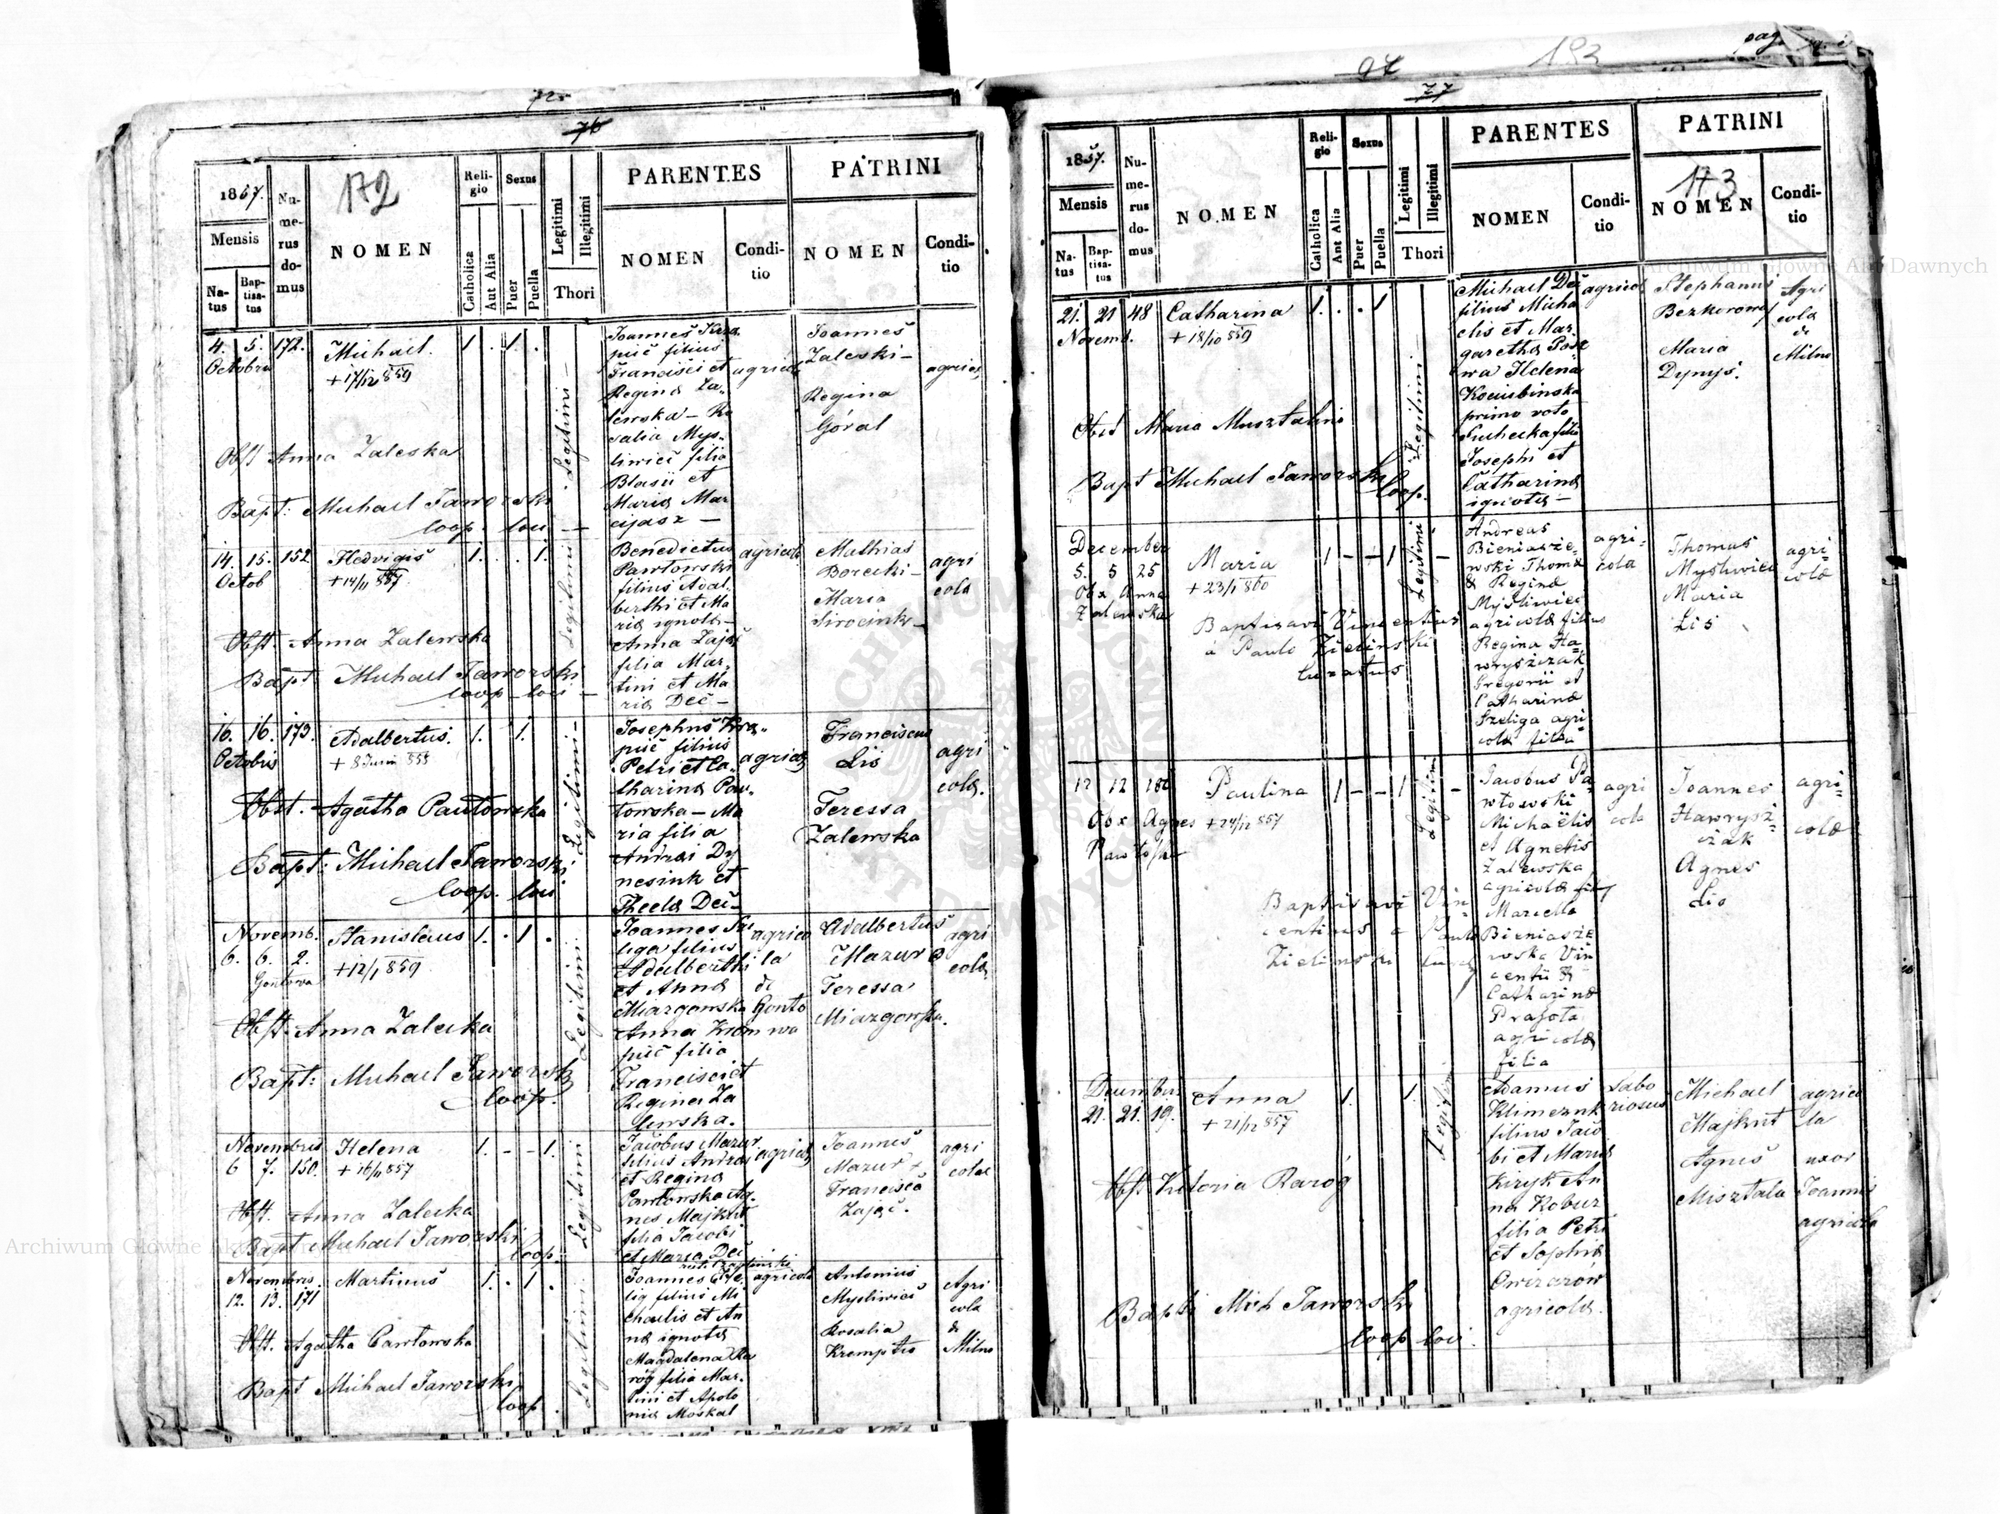 76
172
1857.
Mensis
Natus
Baptisatus
Numerus domus
NOMEN
Religio
Catholica
Aut Alia
Sexus
Puer
Puella
Legitimi
Illegitimi
Thori
PARENTES
NOMEN
Conditio
PATRINI
NOMEN
Conditio
4. 5. 172.
Octobris
Michael.
+ 17/12 859
1 . 1 .
Legitimi
Joannes
puć filius
Francisci et
Regina Za-
lewska — Ro
salia Myś-
liwieć filia
Blasii et
Maria Mar
cijasz —
agricola
Joannes
Zaleski —
Regina
Góral
agricola
Obst Anna Zaleska
Bapt: Michael Jaworski
Coop. loci —
14. 15. 152
Octob
Hedvigis
+ 14/11 857
1. . 1.
Legitimi
Benedictus
Pawłowski
filius Adal-
berthi et Ma
ria ignota —
Anna Zając
filia Mar-
tini et Ma
ria Deć —
agricola
Mathias
Borecki —
Maria
Sirocink —
agri
cola
Obst. Anna Zalewska
Bapt. Michael Jaworski
Coop — loci —
16. 16. 173.
Octobris
Adalbertus.
+ 8 Junii 858
1. 1.
Legitimi
Josephus Kra-
puć filius
Petri et Ca-
tharina Paw-
łowska — Ma
ria filia
Andrei Dy
nesink et
Thecla Deć —
agricola
Franciscus
Lis
Teressa
Zalewska
agri
cola.
Obst. Agatha Pawłowska
Bapt: Michael Jaworski
Coop. loci
Novemb.
6. 6. 2.
Gontowa
Stanislaus
+ 12/1 859
1. . 1 .
Legitimi
Joannes Sze
liga filius
Adalberthi
et Anna
Miazgowska
Anna Kram
puć filia
Francisci et
Regina Za
lewska.
agrico
la
de
Gonto
wa
Adalbertus
Mazur &
Teressa
Miazgowska.
agri
cola
Obst. Anna Zaleska
Bapt: Michael Jaworski
Coop.
Novembris
6 7. 150.
Helena
+ 16/11 857
1. - - 1.
Legitimi
Jacobus Mazur
filius Andrei
et Regina
Pawłowska Ag-
nes Majkut
filia Jacobi
et Maria Deć
agricola
Joannes
Mazur +
Francisca
Zając.
agri
cola
Obst. Anna Zaleska
Bapt Michael Jaworski
Coop.
Novembris.
12. 13. 171
Martinus
1. . 1 .
Legitimi
Joannes Sze
lig filius Mi
chaelis et An
na ignota
Magdalena Ra
róg filia Mar-
tini et Apolo
nia Moskal
agricola
Antonius
Mysliwieć
Rosalia
Kremptio
Agri
cola
de
Milno
Obst. Agatha Pawłowska
Bapt Michael Jaworski
Coop.
77
97
193
173
1857.
Mensis
Natus
Baptisatus
Numerus domus
NOMEN
Religio
Catholica
Aut Alia
Sexus
Puer
Puella
Legitimi
Illegitimi
Thori
PARENTES
NOMEN
Conditio
PATRINI
NOMEN
Conditio
21. 21 48
Novemb.
Catharina
+ 18/10 859
1. . . 1
Legitimi
Michael Deć
filius Micha
elis et Mar
garetha Pas
wa Helena
Kociubinska
primo voto
Suchecka filia
Josephi et
Catharina
ignota —
agricol
Stephanus
Bezkorowaj
Maria
Dynyś.
Agri
cola
de
Milno
Obst Maria Musztalnio
Bapt Michael Jaworski
Coop.
December
5. 5 25
Obx Anna
Zalewska
Maria
+ 23/1 860
1 - - 1 -
Legitimi
Andreas
Bieniasze-
wski Thoma
& Regina
Myśliwiec
agricola filius
Regina Ha-
wryszczak
Gregorii et
Catharina
Szeliga agri
cola filia
agri-
cola
Thomas
Myśliwiec
Maria
Lis
agri-
cola
Baptisavi Vincentius
a Paulo Zielinski
curatus
12 12 180
Paulina
+ 24/12 857
1 - - 1 -
Legitimi
Jacobus Pa-
włowski
Michaëlis
et Agnetis
Zalewska
agricola filius
Mariella
Bieniasze
wska Vin
centii &
Catharina
Prasota
agricola
filia
agri
cola
Joannes
Hawrysz-
czak
Agnes
Lis
agri-
cola
Obx Agnes
Pawłoska
Baptisavi Vin-
centius a Paulo
Zielinski
December
21. 21. 19.
Anna
+ 21/12 857
1. 1.
Legitimi
Adamus
Klimeznk
filius Jaco
bi et Maria
Kiryk An
na Kobur
filia Petri
et Sophia
Owczarow
agricola.
Labo
riosus
Michael
Majkut
Agnes
Misztala
agrico
la
uxor
Joannis
agricola
Obst Victoria Raróg
Bapti Mich Jaworski
Coop loci.
Archiwum Główne Akt Dawnych
Archiwum Główne Akt Dawnych